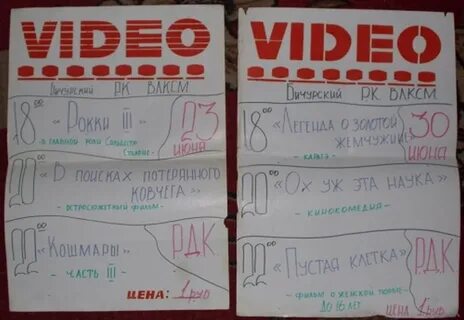 VIDEO
Бичурский РК ВЛКСМ
18⁰⁰ «Рокки III» 23
в главной роли Сильвестр
Сталлоне июня
20⁰⁰ «В поисках потерянного
ковчега»
- остросюжетный фильм -
22⁰⁰ «Кошмары» РДК
- часть III -
ЦЕНА: 1 руб
VIDEO
Бичурский РК ВЛКСМ
18⁰⁰ «Легенда о золотой 30
жемчужине» июня
- каратэ -
20⁰⁰ «Ох уж эта наука»
- кинокомедия -
22⁰⁰ «Пустая клетка» РДК
- фильм о женской тюрьме -
до 16 лет
ЦЕНА 1 руб